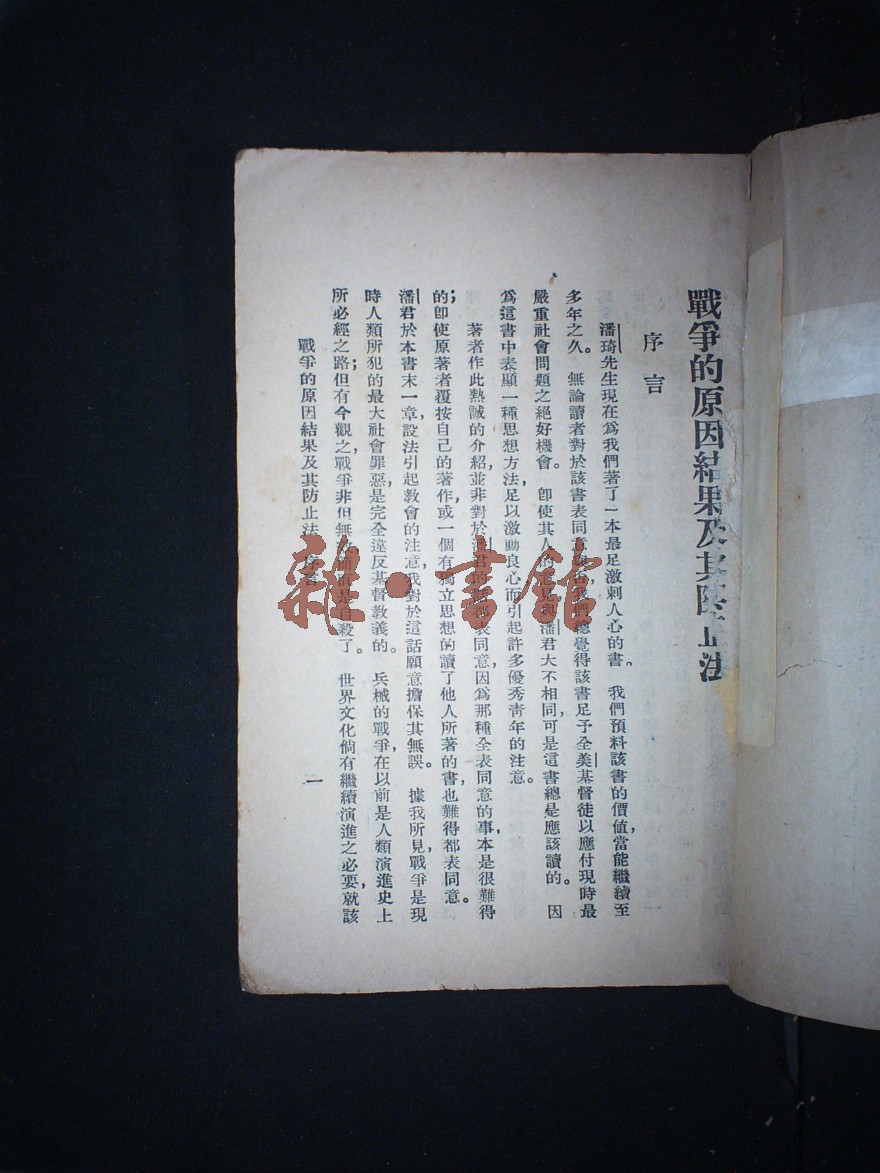 戰爭的原因結果及其防止法
序言
潘琦先生現在爲我們著了一本最足激刺人心的書。我們預料該書的價値當能繼續至
多年之久。無論讀者對於該書表同意與否,我們總覺得該書足予全美基督徒以應付現時最
嚴重社會問題之絕好機會。卽使其人的意見與潘君大不相同,可是這書總是應該讀的。因
爲這書中表顯一種思想方法,足以激動良心而引起許多優秀靑年的注意。
著者作此熱誠的介紹,並非對於潘君的話都表同意,因爲那種全表同意的事,本是很難得
的;卽使原著者覆按自己的著作,或一個有獨立思想的讀了他人所著的書,也難得都表同意。
潘君於本書末一章,設法引起敎會的注意,我對於這話願意擔保其無誤。據我所見,戰爭是現
時人類所犯的最大社會罪惡,是完全違反基督敎義的。兵械的戰爭,在以前是人類演進史上
所必經之路;但有今觀之,戰爭非但無效而是自殺了。世界文化倘有繼續演進之必要,就該
戰爭的原因結果及其防止法 序言
一
雜·書館